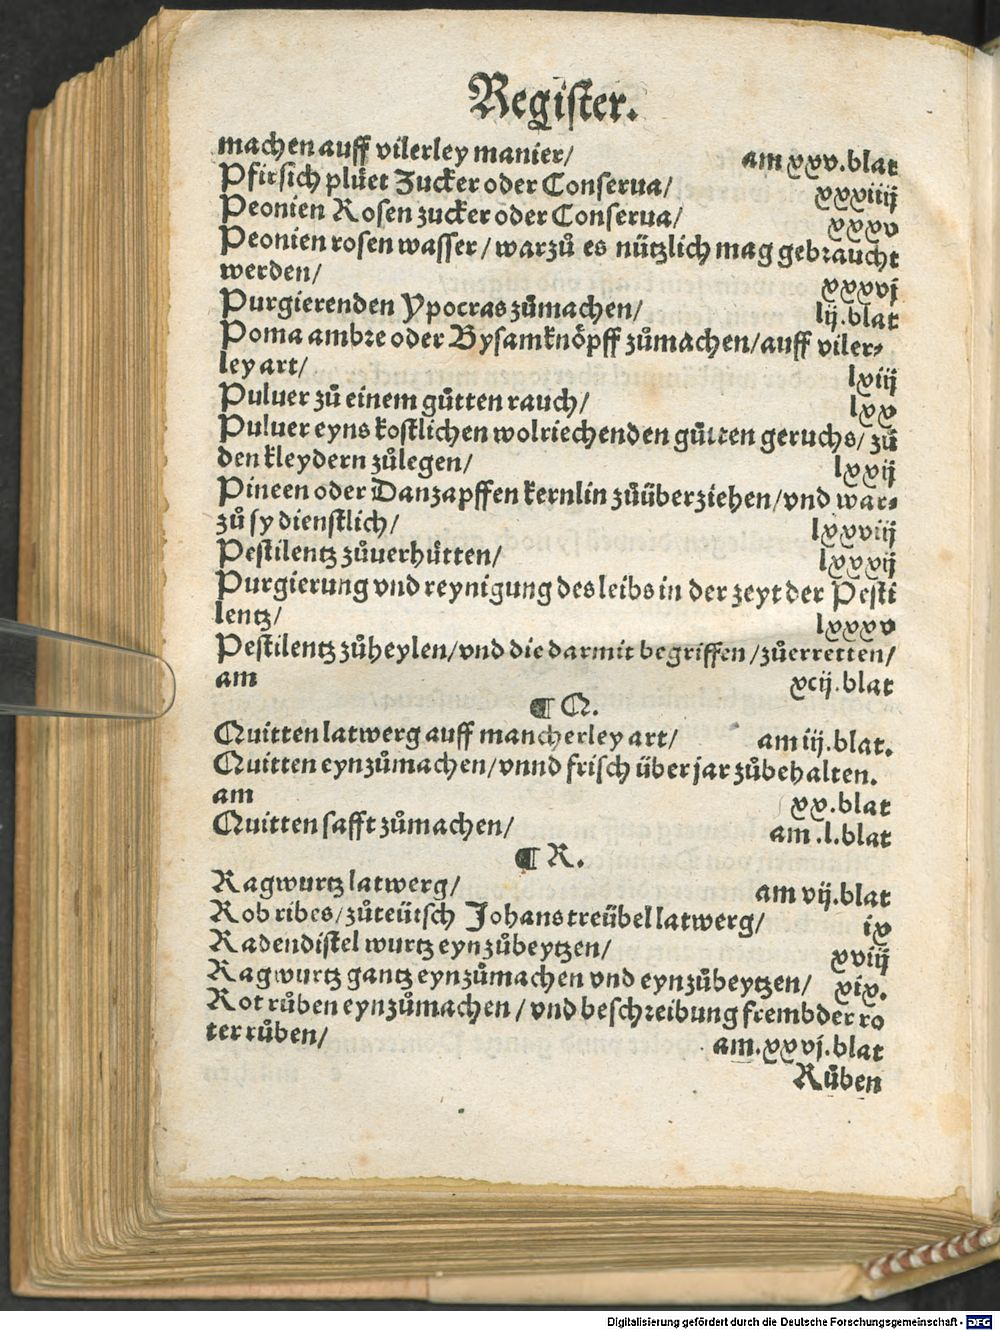 Register.
machen auff vilerley manier/ am xxv.blat
Pfirsich plüet Zucker oder Conserua/ xxxiiij
Peonien Rosen zucker oder Conserua/ xxxv
Peonien rosen wasser/ warzů es nützlich mag gebraucht
werden/ xxxvj
Purgierenden Ypocras zůmachen/ lij.blat
Poma ambre oder Bysamknöpff zůmachen/auff viler⸗
ley art/ lxiij
Puluer zů einem gůtten rauch/ lxx
Puluer eyns kostlichen wolriechenden gůtten geruchs/ zů
den kleydern zůlegen/ lxxij
Pineen oder Danzapffen kernlin zůüberziehen/vnd war⸗
zů sy dienstlich/ lxxviij
Pestilentz zůuerhütten/ lxxxij
Purgierung vnd reynigung des leibs in der zeyt der Pesti
lentz/ lxxxv
Pestilentz zůheylen/vnd die darmit begriffen/zůerretten/
am xcij.blat
¶ Q.
Quitten latwerg auff mancherley art/ am iij.blat.
Quitten eynzůmachen/vnnd frisch über jar zůbehalten.
am xx.blat
Quitten safft zůmachen/ am .l.blat
¶ R.
Ragwurtz latwerg/ am vij.blat
Rob ribes/zůteütsch Johans treübel latwerg/ ix
Radendistel wurtz eynzůbeytzen/ xviij
Ragwurtz gantz eynzůmachen vnd eynzůbeytzen/ xix.
Rot růben eynzůmachen/vnd beschreibung frembder ro
ter růben/ am.xxvj.blat
Růben
Digitalisierung gefördert durch die Deutsche Forschungsgemeinschaft - DFG